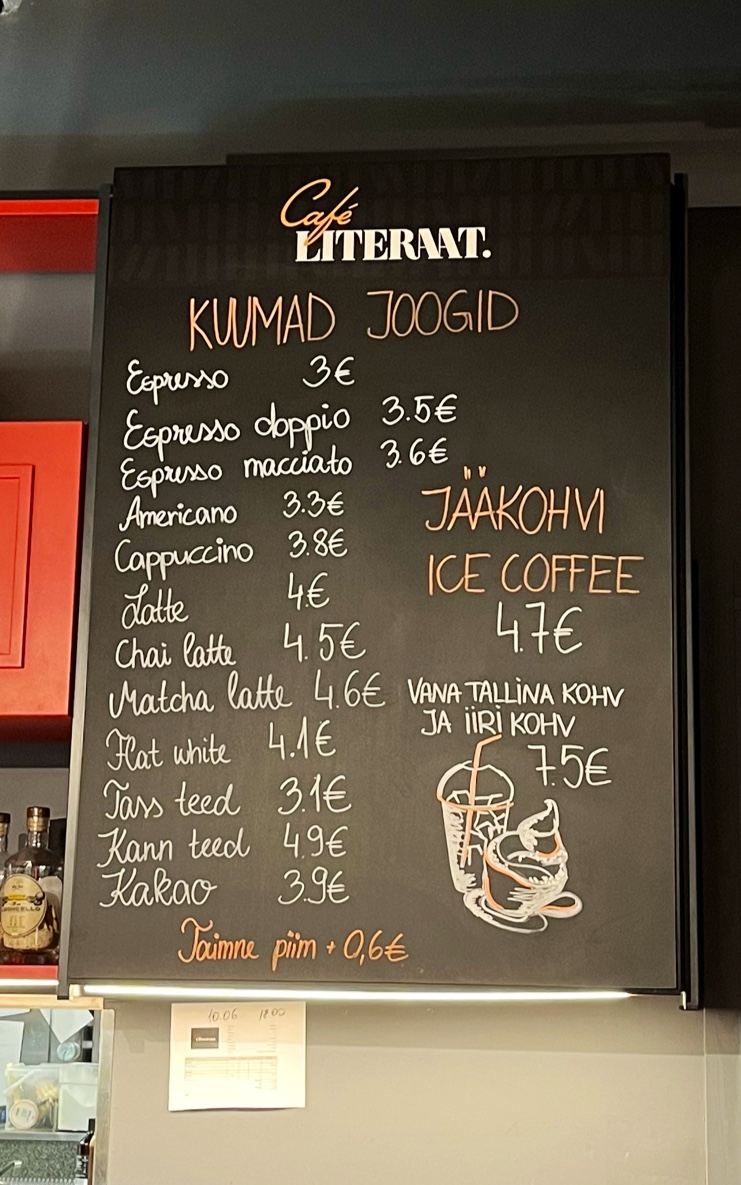 Café
LITERAAT.
KUUMAD JOOGID
Espresso 3€
Espresso doppio 3.5€
Espresso macciato 3.6€
Americano 3.3€
Cappuccino 3.8€
Latte 4€
Chai latte 4.5€
Matcha latte 4.6€
Flat white 4.1€
Tass teed 3.1€
Kann teed 4.9€
Kakao 3.9€
Taimne piim + 0,6€
JÄÄKOHVI
ICE COFFEE
4.7€
VANA TALLINA KOHV
JA IIRI KOHV
7.5€
10.06